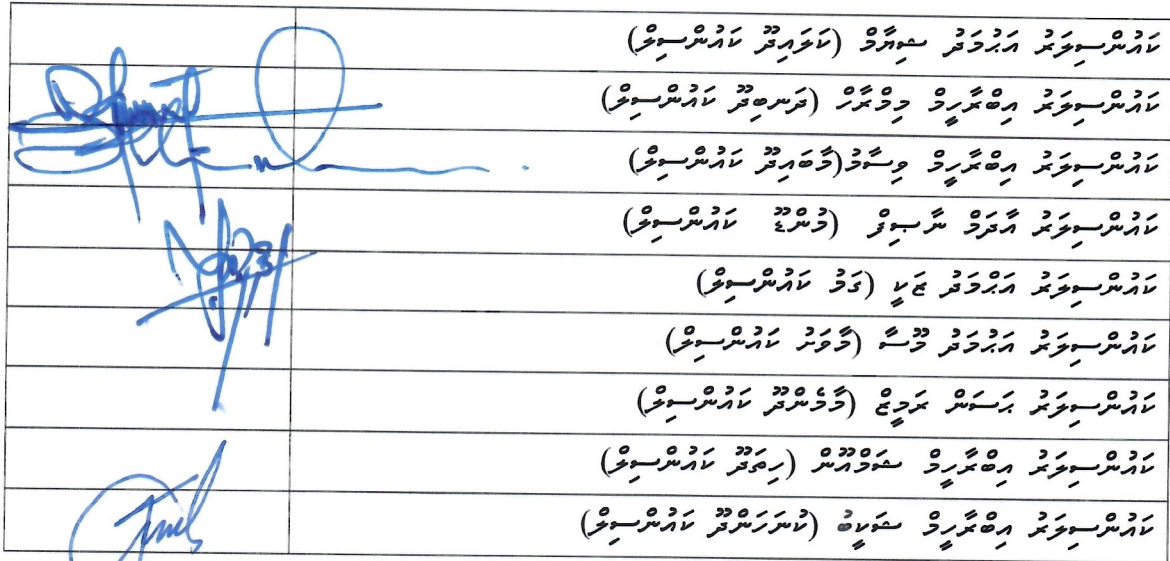 ކައުންސިލަރު އަޙުމަދު ޝިޔާމް (ކަލައިދޫ ކައުންސިލް)
ކައުންސިލަރު އިބްރާހީމް މިމްރާހް (ދަނބިދޫ ކައުންސިލް)
ކައުންސިލަރު އިބްރާހީމް ވިސާމު(މާބައިދޫ ކައުންސިލް)
ކައުންސިލަރު އާދަމް ނާޞިފް (މުންޑޫ ކައުންސިލް)
ކައުންސިލަރު އަޙްމަދު ޒަކީ (ގަމު ކައުންސިލް)
ކައުންސިލަރު އަޙުމަދު މޫސާ (މާވަށު ކައުންސިލް)
ކައުންސިލަރު ޙަސަން ރަމީޒް (މާމެންދޫ ކައުންސިލް)
ކައުންސިލަރު އިބްރާހީމް ޝަމްއޫން (ހިތަދޫ ކައުންސިލް)
ކައުންސިލަރު އިބްރާހީމް ޝަކީބު (ކުނަހަންދޫ ކައުންސިލް)